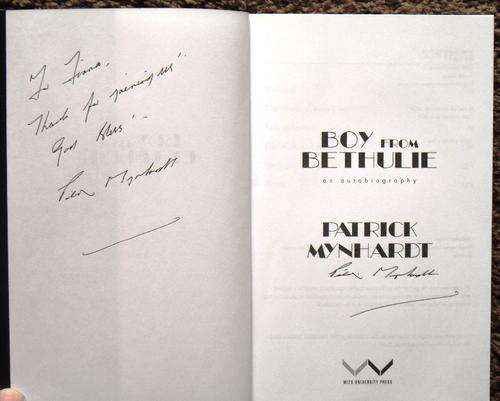 To Fiona,
Thanks for joining us!
God bless!
Patrick Mynhardt
BOY FROM
BETHULIE
an autobiography
PATRICK
MYNHARDT
Patrick Mynhardt
WITS UNIVERSITY PRESS